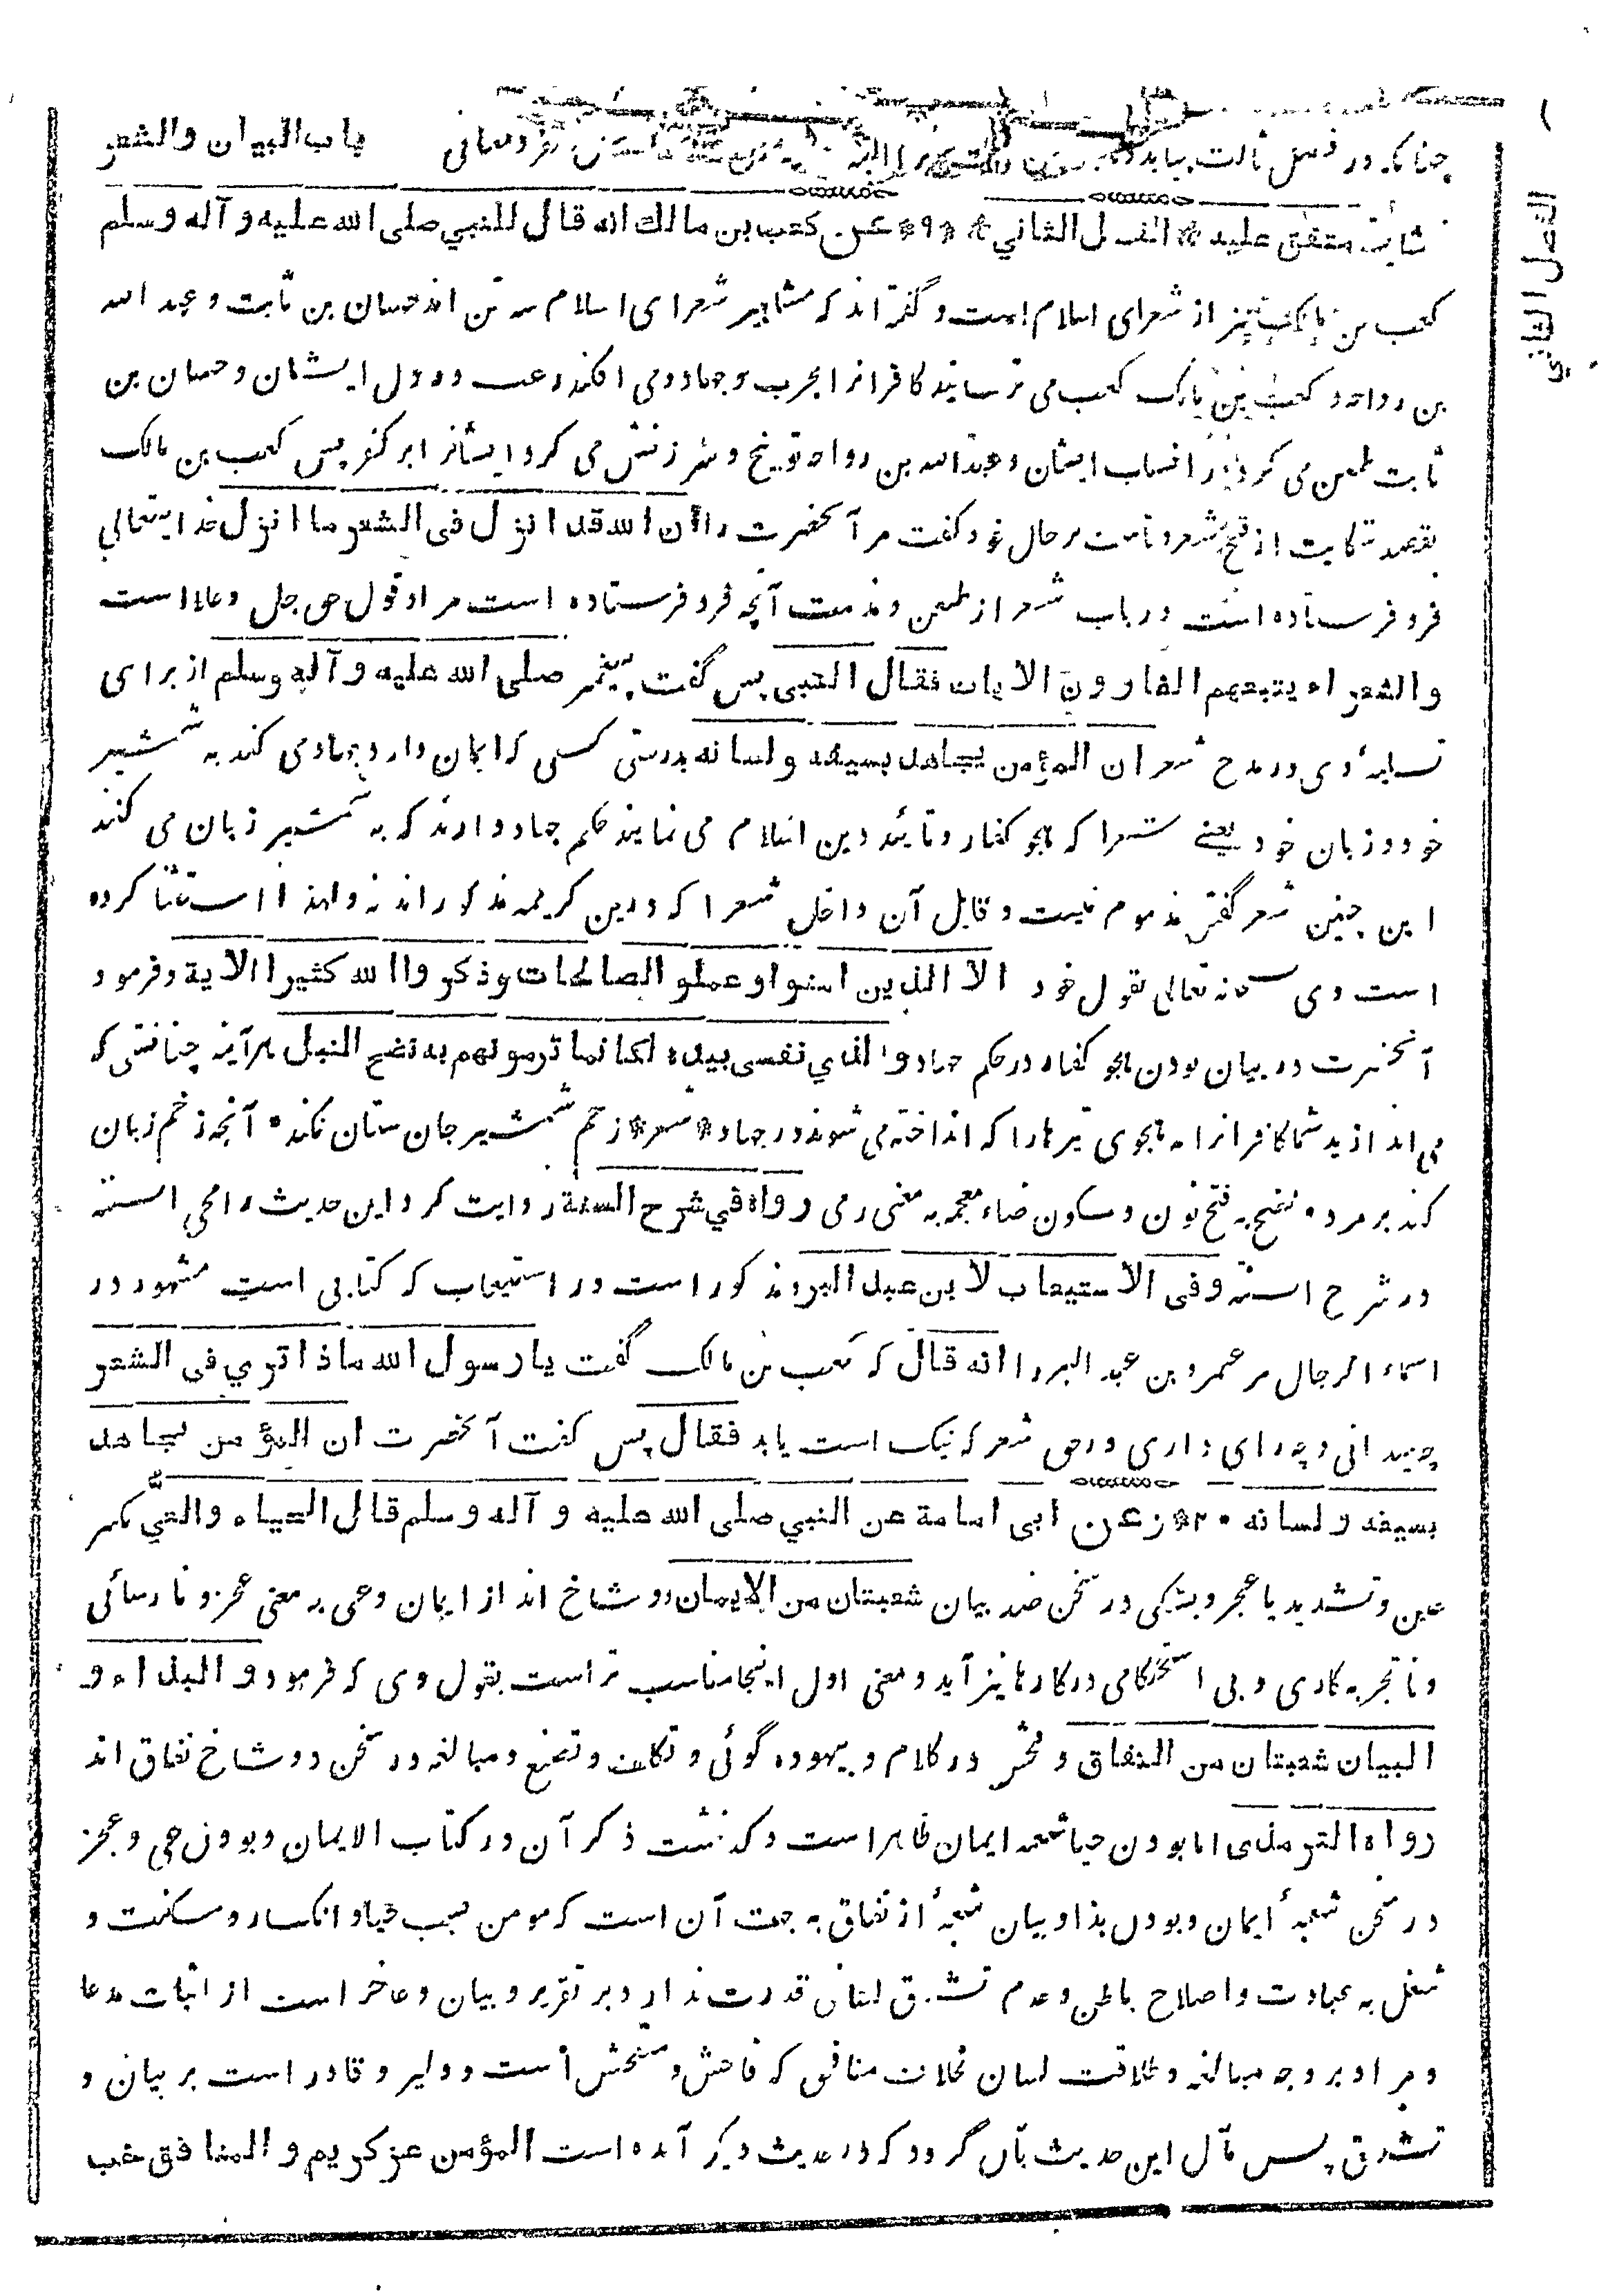 باب البيان والشعر
الفصل الثاني
چنانکه در فصل ثالث بیاید
متفق عليه * الفصل الثاني * * ٩ * عن كعب بن مالك انه قال للنبي صلى الله عليه و آله و سلم
كعب بن مالک نیز از شعرای اسلام است و گفته اند که مشاهیر شعرای اسلام سه تن اند حسان بن ثابت و عبد الله
بن رواحه و کعب بن مالک کعب می ترسانید کافرانرا بحرب و جهاد و می افکند رعب در دل ایشان و حسان بن
ثابت طعن می کرد در انساب ایشان و عبد الله بن رواحه توبیخ و سرزنش می کرد ایشانرا بر کفر پس کعب بن مالک
بقصد شکایت از قبح شعر و تاسف بر حال خود گفت مر آنحضرت را ان الله قد انزل في الشعر ما انزل خدایتعالی
فرو فرستاده است در باب شعر از طعن و مذمت آنچه فرو فرستاده است مراد قول حق جل و علا است
والشعراء يتبعهم الغاوون الايات فقال النبي پس گفت پیغمبر صلى الله عليه و آله وسلم از برای
تسلیهٔ وی در مدح شعر ان المؤمن يجاهد بسيفه ولسانه بدرستی کسی که ایمان دارد جهاد می کند به شمشیر
خود و زبان خود یعنے شعرا که هجو کفار و تائید دین اسلام می نمایند حکم جهاد دارند که به شمشیر زبان می کنند
این چنین شعر گفتن مذموم نیست و قایل آن داخل شعرا که درین کریمه مذکور اند نه و لهذا استثنا کرده
است وی سبحانه تعالی بقول خود الا الذين امنوا وعملوا الصالحات وذكروا الله كثيرا الاية و فرمود
آنحضرت در بیان بودن هجو کفار در حکم جهاد والذي نفسي بيده لكانما ترمونهم به نضح النبل هر آینه چنانستی که
می اندازید شما کافرانرا به هجوی تیرها را که انداخته می شوند در جهاد * شعر * زخم شمشیر جان ستان نکند * آنچه زخم زبان
کند بر مرد * نضح به فتح نون و سکون ضاء معجمه به معنی رمی رواه في شرح السنة روایت کرد این حدیث را محی السنه
در شرح السنه وفي الاستيعاب لابن عبد البر و مذکور است در استیعاب که کتابی است مشهور در
اسماء الرجال مر عمرو بن عبد البر را انه قال که کعب بن مالک گفت يا رسول الله ماذا ترى في الشعر
چه میدانی و چه رای داری در حق شعر که نیک است یا بد فقال پس گفت آنحضرت ان المؤمن يجاهد
بسيفه ولسانه * ١٠ * و عن ابي امامة عن النبي صلى الله عليه و آله وسلم قال الحياء والعي بکسر
عین و تشدید یا عجز و بستگی در سخن ضد بیان شعبتان من الايمان دو شاخ اند از ایمان و عی به معنی عجز و نارسائی
و ناتجربه کاری و بی استحکامی در کارها نیز آید و معنی اول اینجا مناسب تر است بقول وی که فرمود والبذاء و
البيان شعبتان من النفاق و فحش در کلام و بیهوده گوئی و تکلف و تصنع و مبالغه در سخن دو شاخ نفاق اند
رواه الترمذي اما بودن حیا شعبه ایمان ظاهر است و گذشت ذکر آن در کتاب الایمان و بودن عی و عجز
در سخن شعبهٔ ایمان و بودن بذا و بیان شعبهٔ از نفاق به جهت آن است که مومن بسبب حیا و انکسار و مسکنت و
شغل به عبادت و اصلاح باطن و عدم تشدق لسانی قدرت ندارد بر تقریر و بیان و عاجز است از اثبات مدعا
و مراد بر وجه مبالغه و طلاقت لسان بخلاف منافق که فاحش و متفحش است و دلیر و قادر است بر بیان و
تشدق پس مآل این حدیث بآن گردد که در حدیث دیگر آمده است المؤمن غر كريم والمنافق خب